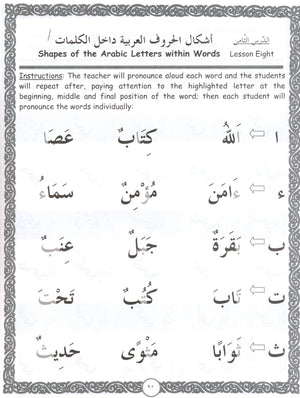 الدرس الثامن أشكال الحروف العربية داخل الكلمات
Shapes of the Arabic Letters within Words Lesson Eight
Instructions: The teacher will pronounce aloud each word and the students
will repeat after, paying attention to the highlighted letter at the
beginning, middle and final position of the word; then each student will
pronounce the words individually:
ا ⇐ اَللهُ كِتَابٌ عَصَا
ء ⇐ ءَامَنَ مُؤْمِنٌ سَمَاءٌ
ب ⇐ بَقَرَةٌ جَبَلٌ عِنَبٌ
ت ⇐ تَابَ كُتُبٌ تَحْتَ
ث ⇐ ثَوَابًا مَثْوًى حَدِيثٌ
١٠